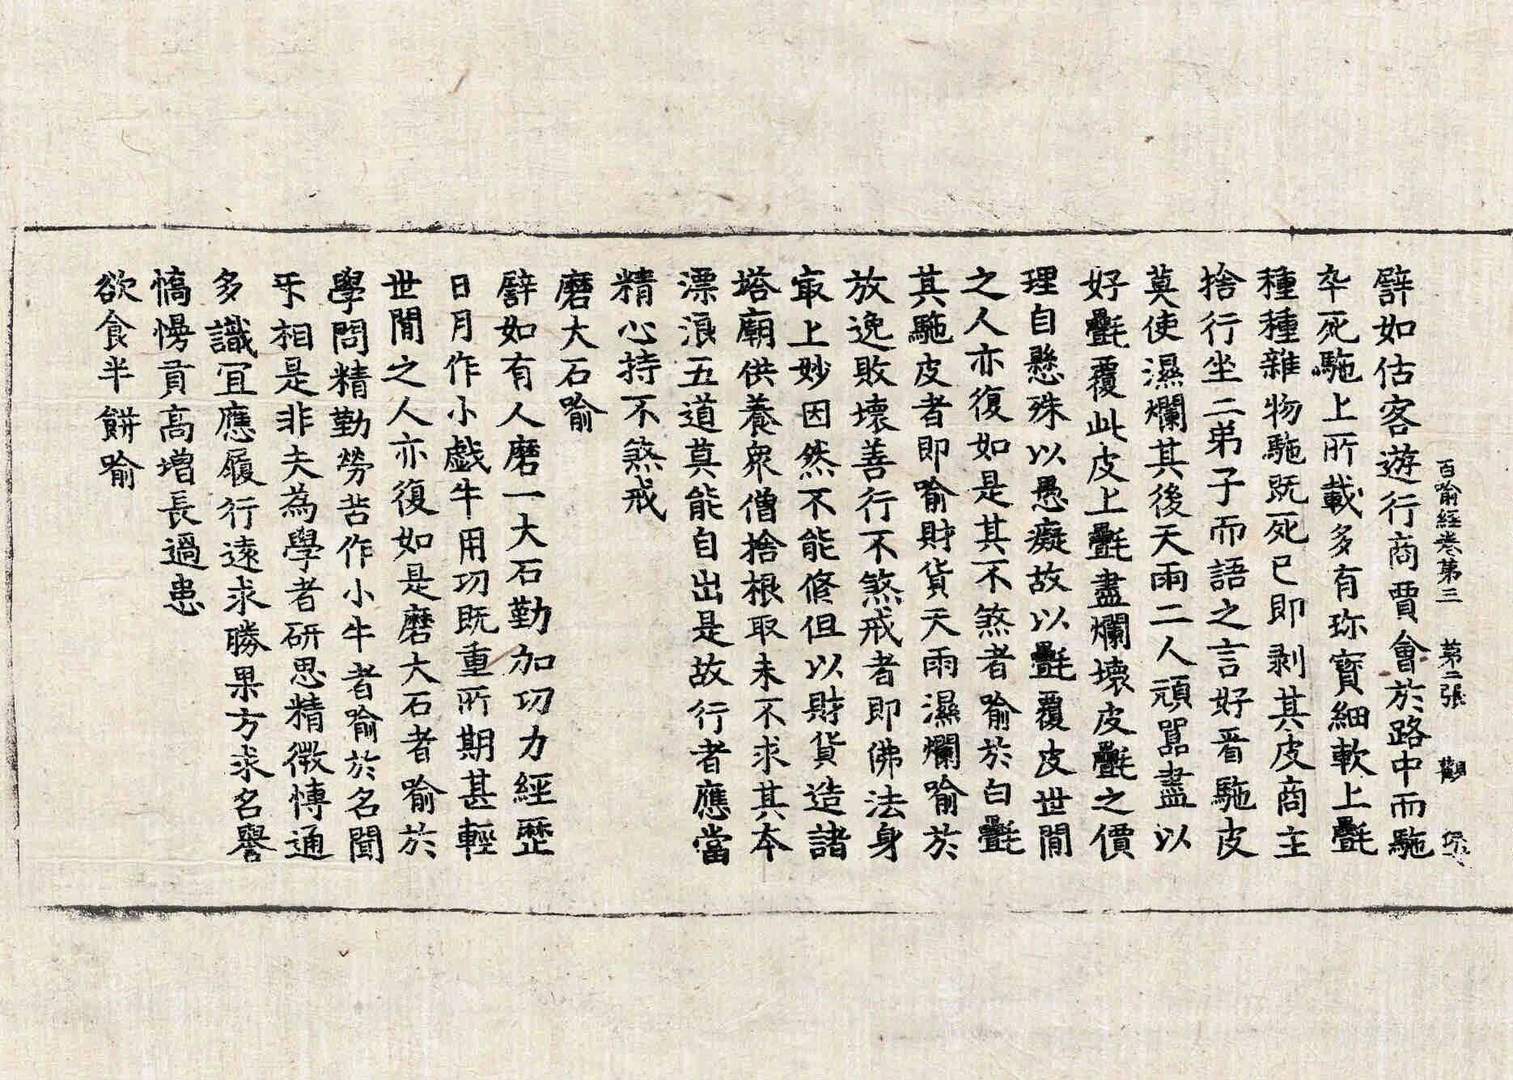 百喻經卷第三　第二張　觀
譬如估客遊行商賈會於路中而駞
卒死駞上所載多有珎寳細軟上㲲
種種雜物駞既死已即剥其皮商主
捨行坐二弟子而語之言好看駞皮
莫使濕爛其後天雨二人頑嚚盡以
好㲲覆此皮上㲲盡爛壞皮㲲之價
理自懸殊以愚癡故以㲲覆皮世間
之人亦復如是其不煞者喻於白㲲
其駞皮者即喻財貨天雨濕爛喻於
放逸敗壞善行不煞戒者即佛法身
㝡上妙因然不能修但以財貨造諸
塔廟供養衆僧捨根取末不求其本
漂浪五道莫能自出是故行者應當
精心持不煞戒
磨大石喻
譬如有人磨一大石勤加功力經歷
日月作小戲牛用功既重所期甚輕
世間之人亦復如是磨大石者喻於
學問精勤勞苦作小牛者喻於名聞
㸦相是非夫為學者研思精微博通
多識冝應履行遠求勝果方求名譽
憍慢貢高増長過患
欲食半餅喻